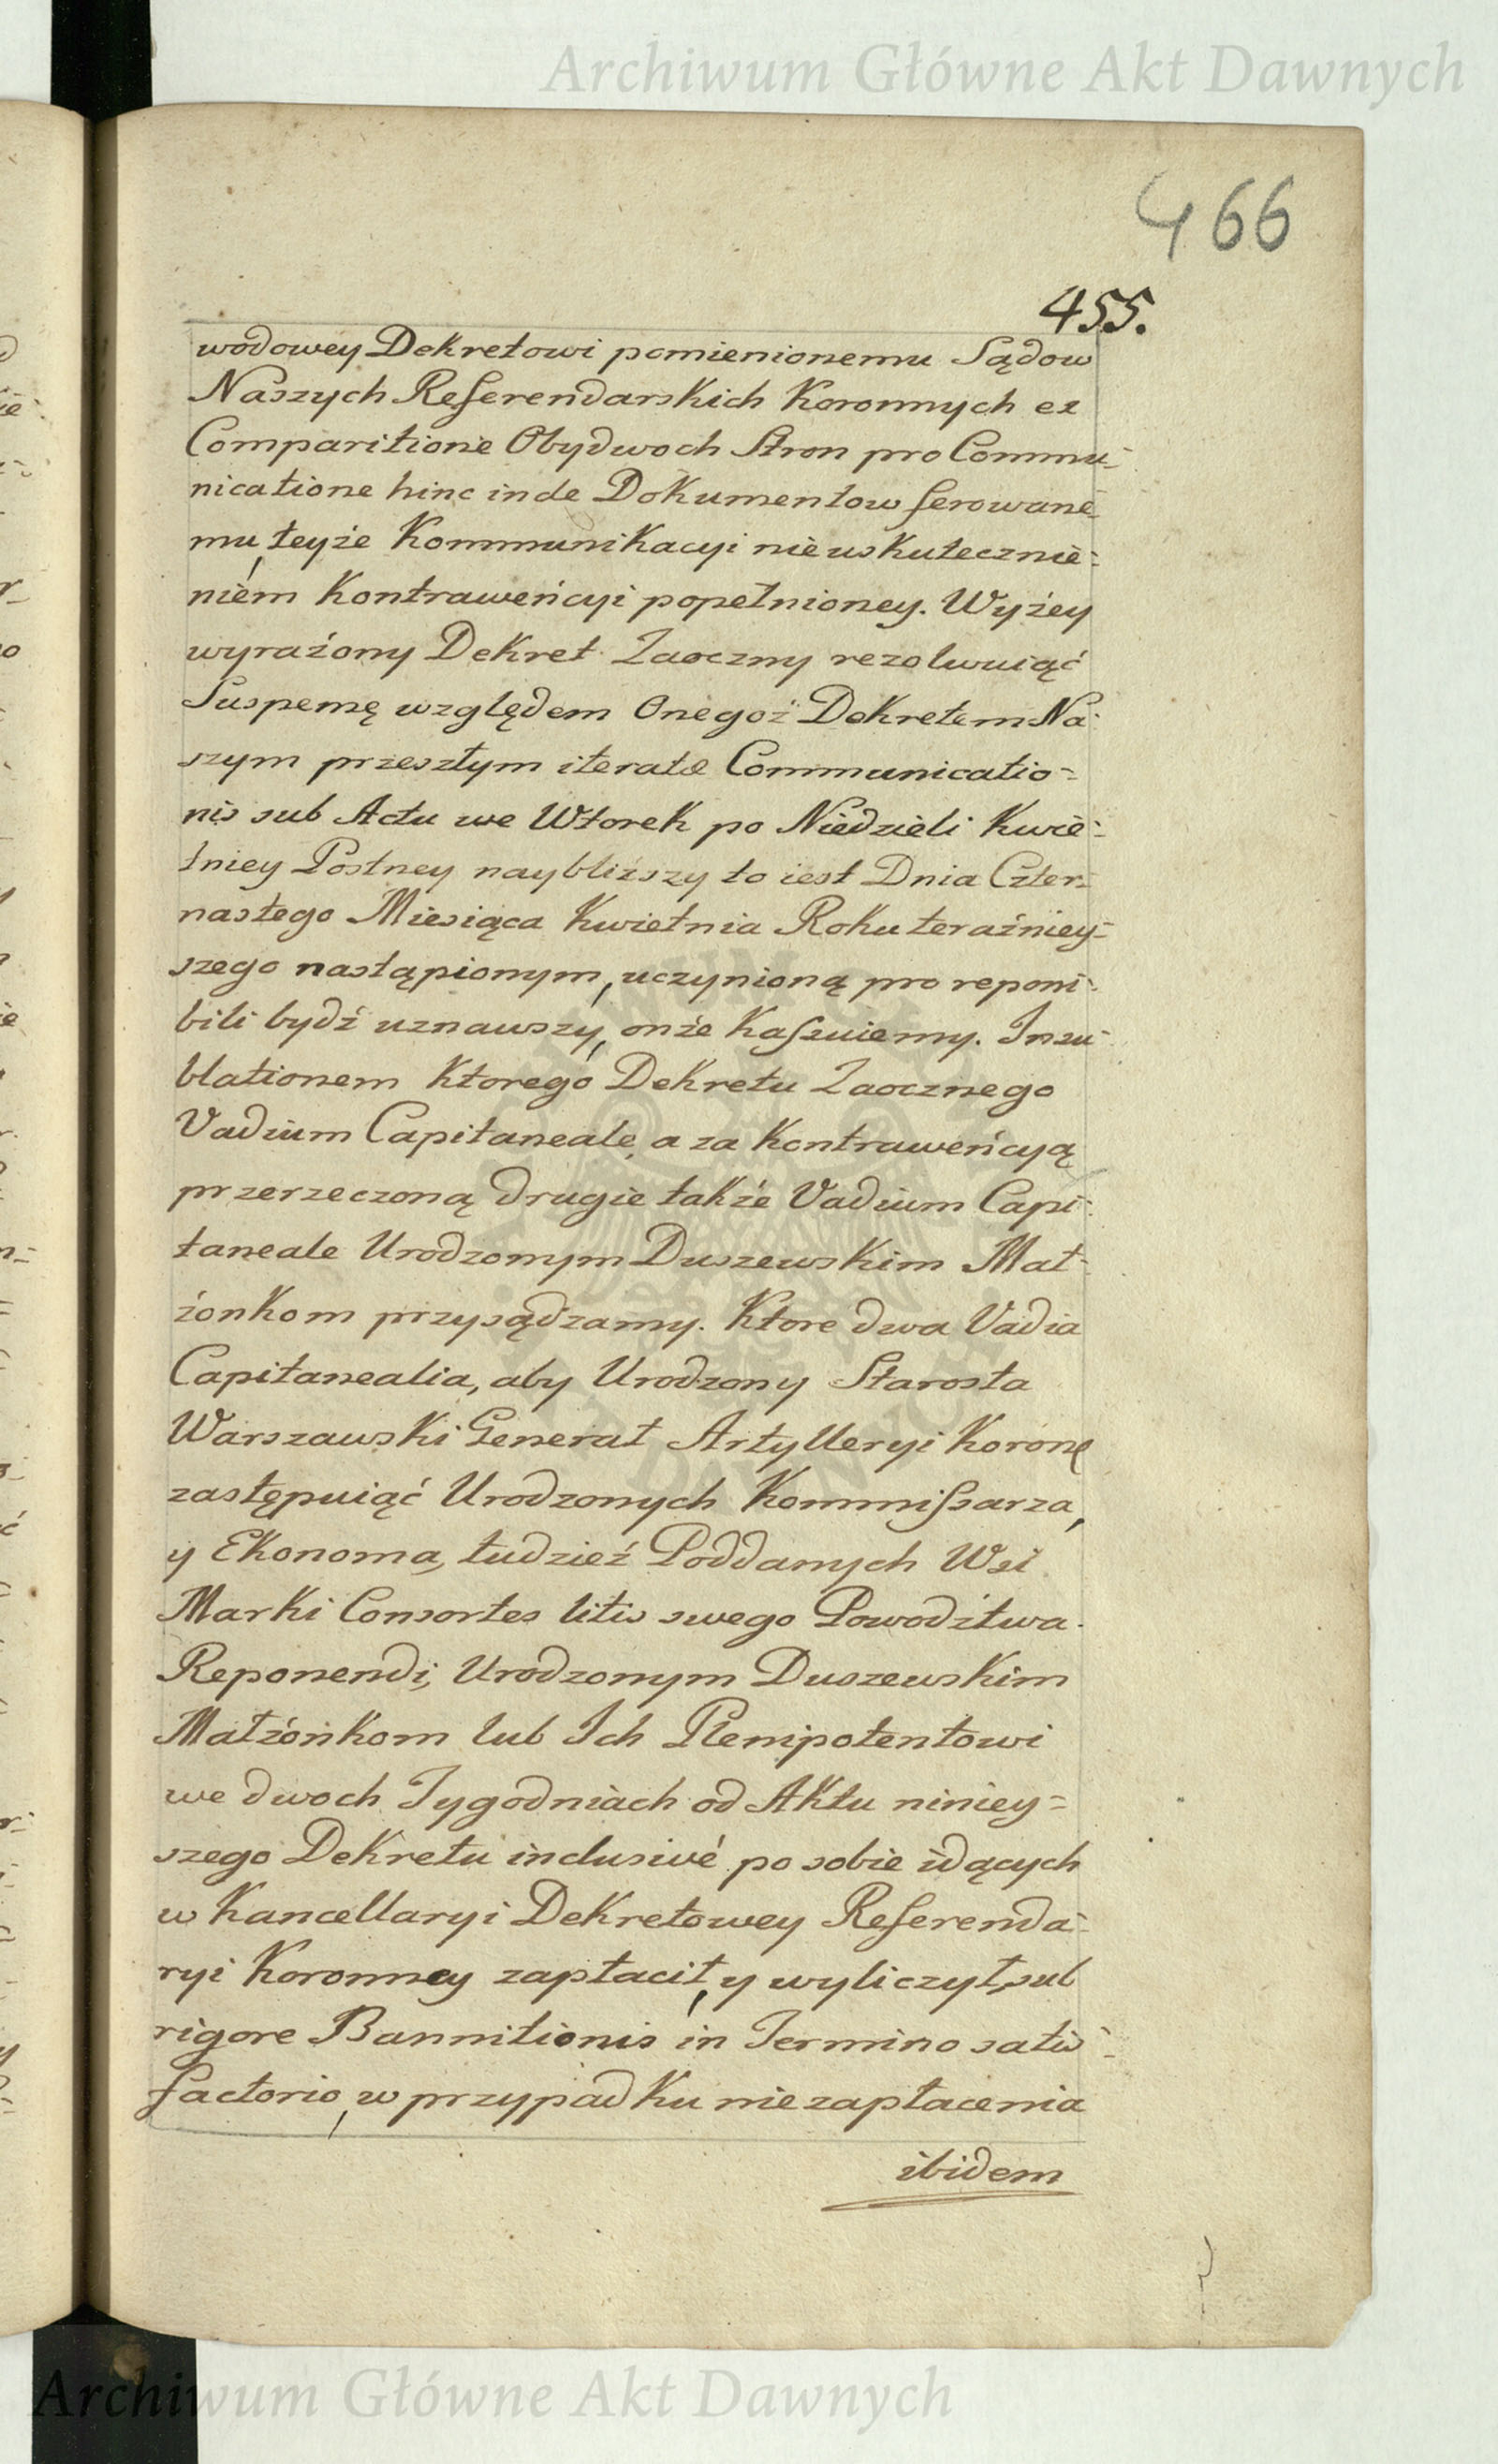 Archiwum Główne Akt Dawnych
466
455.
wodowey Dekretowi pomienionemu Sądow
Naszych Referendarskich Koronnych ex
Comparitione Obydwoch Stron pro Commu-
nicatione hinc inde Dokumentow ferowane-
mu, teyże Kommunikacyi nieuskutecznie-
niem Kontraweńcyi popełnioney. Wyżey
wyrażony Dekret Zaoczny rezolwuiąć
Suspensę względem Onegoż Dekretem Na-
szym przeszłym iteratæ Communicatio-
nis sub Actu we Wtorek po Niedzieli Kwie-
tniey Postney naybliższy to iest Dnia Czter-
nastego Miesiąca Kwietnia Roku teraźniey-
szego nastąpionym, uczynioną pro reponi-
bili bydź uznawszy, onże Kassuiemy. In su-
blationem Ktorego Dekretu Zaocznego
Vadium Capitaneale, a za Kontraweńcyą
przerzeczoną drugie także Vadium Capi-
taneale Urodzonym Duszewskim Mał-
żonkom przysądzamy. Ktore dwa Vadia
Capitanealia, aby Urodzony Starosta
Warszawski Generał Artylleryi Koronę
zastępuiąć Urodzonych Kommissarza,
y Ekonoma, tudzież Poddanych Wsi
Marki Consortes litis swego Powodztwa
Reponendi, Urodzonym Duszewskim
Małżonkom lub Ich Plenipotentowi
we dwoch Tygodniach od Aktu niniey-
szego Dekretu inclusivé po sobie idących
w Kancellaryi Dekretowey Referenda-
ryi Koronney zapłacił, y wyliczył, sub
rigore Bannitionis in Termino satis-
factorio, w przypadku niezapłacenia
ibidem
Archiwum Główne Akt Dawnych